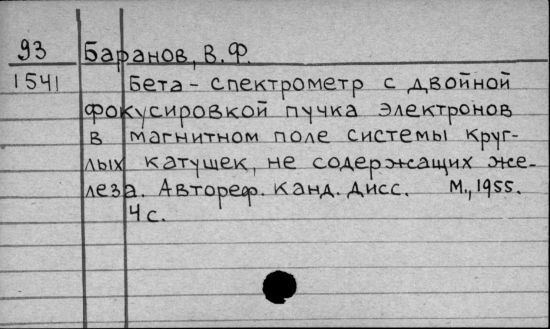 93 Баранов, В.Ф.
1541 Бета-спектрометр с двойной
фокусировкой пучка электронов
в магнитном поле системы круг-
лых катушек, не содержащих же-
леза. Автореф. канд. дисс. М., 1955.
4 с.